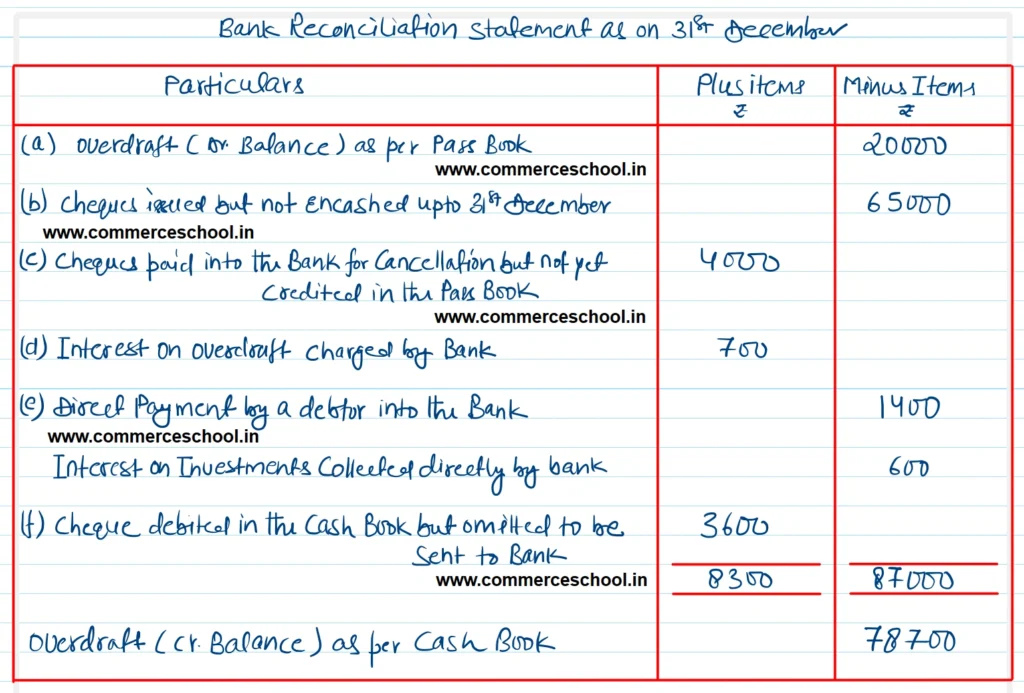 Bank Reconciliation Statement as on 31st December
Particulars Plus items Minus Items
₹ ₹
(a) overdraft (Dr. Balance) as per Pass Book 20000
www.commerceschool.in
(b) Cheques issued but not Encashed upto 31st December 65000
www.commerceschool.in
(c) Cheques paid into the Bank for Cancellation but not yet 4000
Credited in the Pass Book
www.commerceschool.in
(d) Interest on overdraft charged by Bank 700
(e) Direct Payment by a debtor into the Bank 1400
www.commerceschool.in
Interest on Investments Collected directly by bank 600
(f) Cheque debited in the Cash Book but omitted to be 3600
Sent to Bank
www.commerceschool.in 8300 87000
Overdraft (Cr. Balance) as per Cash Book 78700